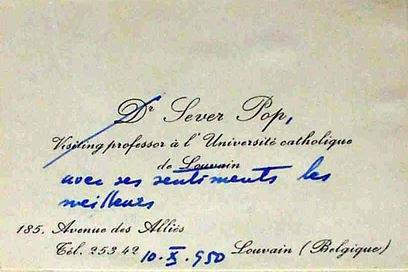 Dr Sever Pop,
Visiting professor à l'Université catholique
de Louvain
avec ses sentiments les
meilleurs
185. Avenue des Alliés
Tél. 253 42 10.X.950 Louvain (Belgique)